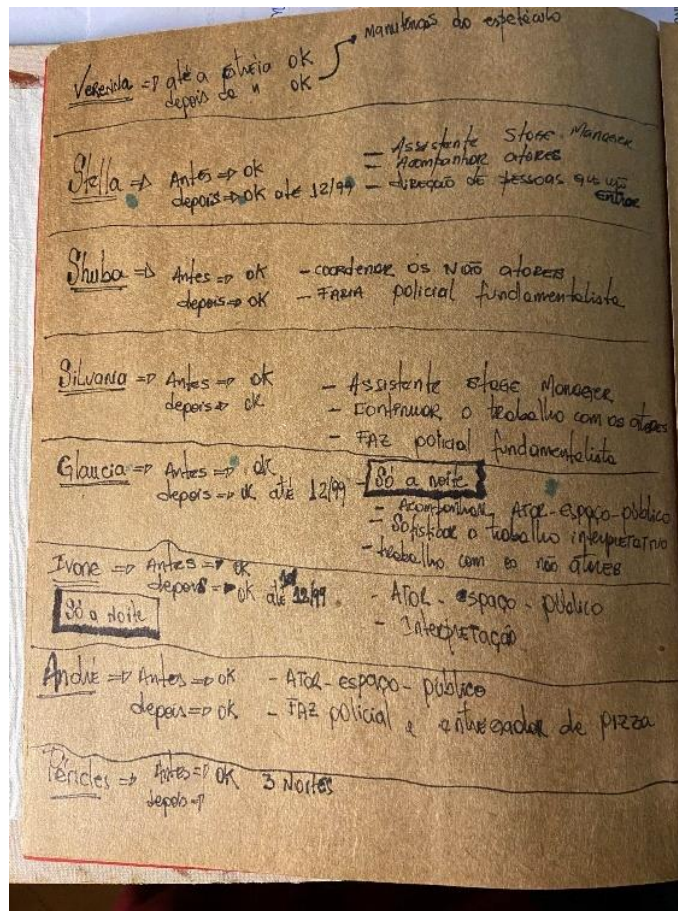 Verenna => até a estreia ok
depois da " ok
Manutenção do espetáculo
Stella => Antes => ok
depois => ok até 12/99
- Assistente Stage Manager
- Acompanhar atores
- direção de pessoas que vão
entrar
Shuba => Antes => ok
depois => ok
- coordenar os Não atores
- FARIA policial fundamentalista
Silvana => Antes => ok
depois => ok
- Assistente Stage Manager
- Continuar o trabalho com os atores
- FAZ policial fundamentalista
Glaucia => Antes => ok
depois => ok até 12/99 -
Só a noite
- Acompanhar, Ator-espaço-público
- Sofisticar o trabalho interpretativo
- trabalho com os não atores
Ivone => Antes => ok
depois => ok até 12/99.
Só a Noite
- ATOR - espaço - público
- Interpretação
André => Antes => ok
depois => ok
- ATOR-espaço-público
- FAZ policial e entregador de pizza
Péricles => Antes => OK 3 Noites
depois =>